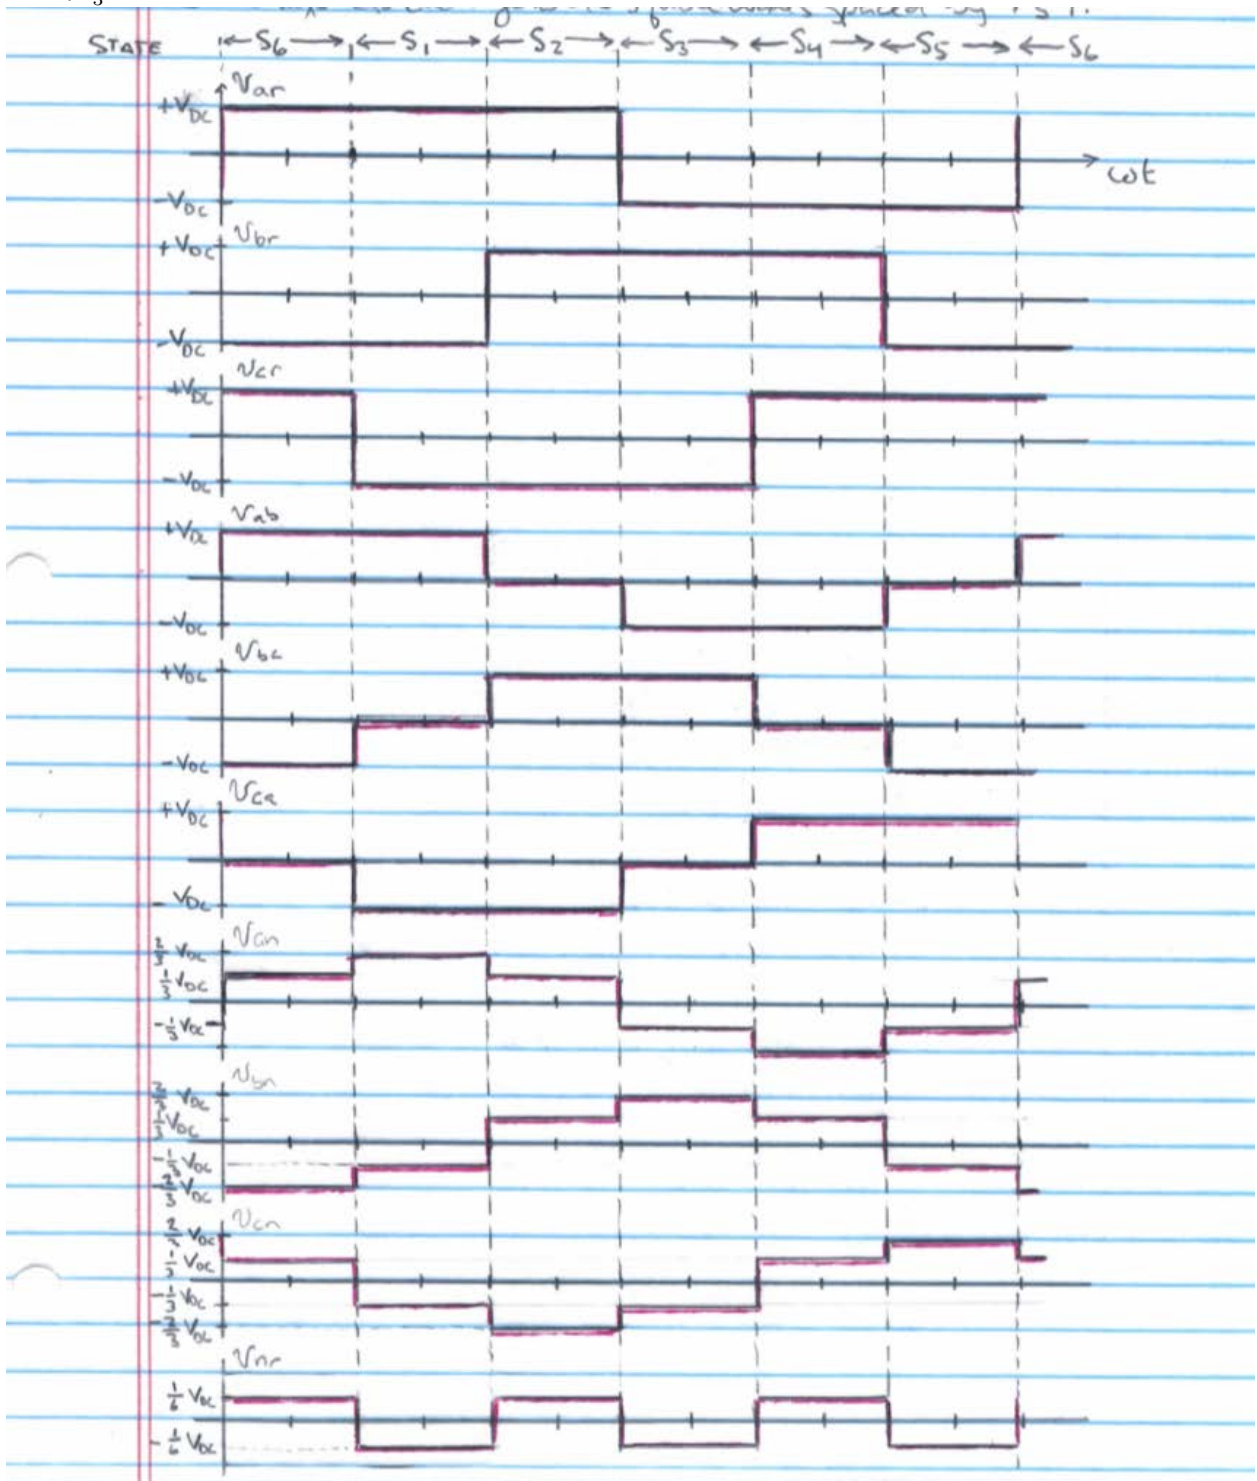 spaced by
STATE ←S₆→ ←S₁→ ←S₂→ ←S₃→ ←S₄→ ←S₅→ ←S₆
Var
+VDC
ωt
-VDC
Vbr
+VDC
-VDC
Vcr
+VDC
-VDC
Vab
+VDC
-VDC
Vbc
+VDC
-VDC
Vca
+VDC
- VDC
Van
2/3 VDC
1/3 VDC
-1/3 VDC
Vbn
2/3 VDC
1/3 VDC
-1/3 VDC
-2/3 VDC
Vcn
2/3 VDC
1/3 VDC
-1/3 VDC
-2/3 VDC
Vnr
1/6 VDC
-1/6 VDC